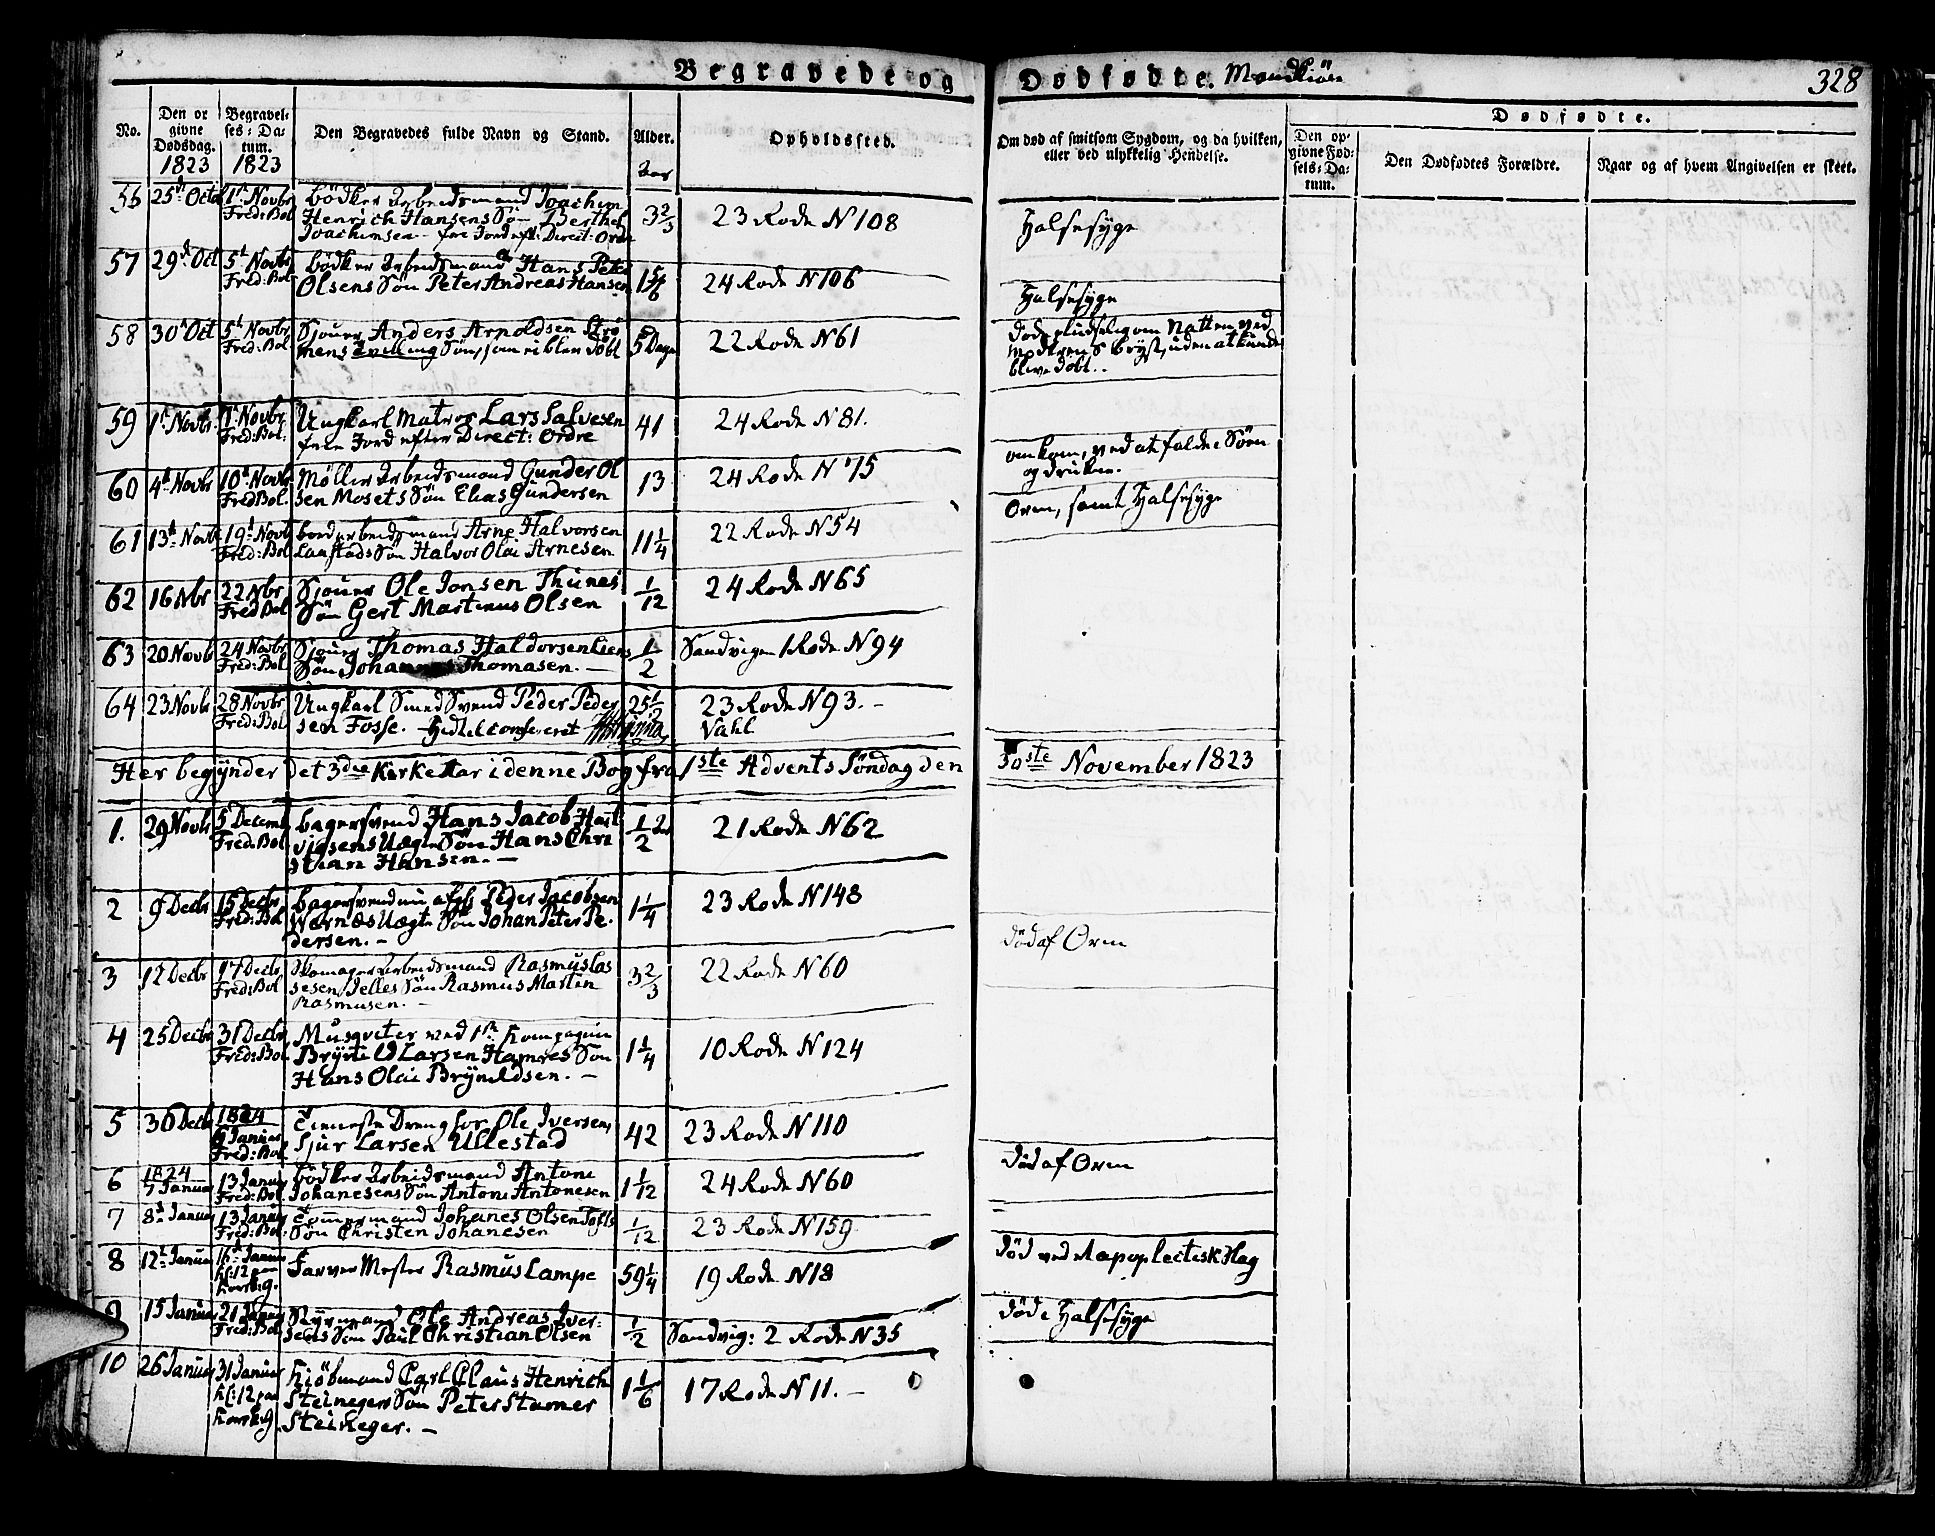 Begravede og Dødfødte. Mandkiön 328
No.
Den opgivne Dødsdag. 1823
Begravelses-Datum. 1823
Den Begravedes fulde Navn og Stand.
Alder. Aar
Opholdssted.
Om død af smitsom Sygdom, og da hvilken, eller ved ulykkelig Hendelse.
Dødfødte.
Den opgivne Fødsels-Datum.
Den Dødfødtes Forældre.
Naar og af hvem Angivelsen er skeet.
56 25de Octb 1st Novbr Fred: Bol
Bödker Arbeidsmand Joachim
Henrich Hansens Sön Berthel
Joachimsen - før Jord eft: Direct: Ordre
3 2/3 23 Rode N 108 Halsesyge
57 29d Oct 5t Novbr Fred: Bol
Bödker Arbeidsmand Hans Peter
Olsens Sön Peter Andreas Hansen
1 5/6 24 Rode N 106 Halsesyge
58 30t Oct 5t Novbr Fred: Bol
Sjouer Anders Arnoldsen Strö
mens Tvilling Sön, som ei blev döbt
5 Dage 22 Rode N 61
Døde pludselig om Natten ved
Moderens Bryst, uden at kunde
blive døbt.
59 1t Novbr 7t Novbr Fred: Bol:
Ungkarl Matros Lars Salvesen
före Jord efter Direct: Ordre
41 24 Rode N 81.
omkom, ved at falde i Søen
og drukne.
60 4t Novbr 10t Novbr Fred: Bol
Möller Arbeidsmand Gunder Ol
sen Mosets Sön Elias Gundersen
13 24 Rode N 75 Orm, samt Halsesyge
61 13d Novb 19d Novb Fred: Bol
bordarbeidsmand Arne Halvorsen
Laastads Sön Halvor Olai Arnesen
11 1/4 22 Rode N 54
62 16 Nbr 22 Nbr Fred: Bol
Sjouer Ole Jonsen Thunes
Sön Gert Martinus Olsen
1/12 24 Rode N 65
63 20 Novb 24 Novbr Fred: Bol
Sjouer Thomas Haldorsen Liens
Sön Johannes Thomasen. -
1/2 Sandvigen 1 Rode N 94
64 23 Novbr 28 Novbr Fred: Bol
Ungkarl Smed Svend Peder Peder
sen Fosse. Hidtil confereret
25 1/2 23 Rode N 93. -
Vahl
Her begynder det 3die Kirke Aar i denne Bog fra 1ste Advents Söndag den 30ste November 1823
1. 29 Novbr 5 Decemb Fred: Bol
Bagersvend Hans Jacob Hart
vigsens Uægte Sön Hans Chri
stian Hansen. -
1/2 Aar 21 Rode N 62
2 9 Decbr 15 Decbr Fred: Bol
Bagersvend nu afg: Peder Jacobsen
Wærnæs Uægte Sön Johan Peter Pe-
dersen. -
1 1/4 23 Rode N 148 død af Orm
3 12 Decbr 17 Decbr Fred: Bol
Skomager Arbeidsmand Rasmus Las
sesen Jelles Sön Rasmus Martin
Rasmusen. -
3 2/3 22 Rode N 60
4 25 Decbr 31 Decbr Fred: Bol
Musqveter ved 1ste Kompagnie
Bryneld Larsen Hamres Sön
Hans Olai Bryneldsen. -
1 1/4 10 Rode N 124
5 30 Decb 1824 6 Januar Fred: Bol
Tieneste Dreng hos Ole Iversen,
Sjur Larsen Ullestad
42 23 Rode N 110 død af Orm
6 1824 7 Januar 13 Januar Fred: Bol
Bödker Arbeidsmand Antoni
Johanesens Sön Antoni Antonesen
1 1/12 24 Rode N 60
7 8d Januar 13 Januar Fred: Bol
Tömmermand Johanes Olsen Tofts
Sön Christen Johanesen
1/12 23 Rode N 159
8 12t Januar 16d Januar kl: 12 paa Korsk:g.
Farver Mester Rasmus Lampe
59 1/4 19 Rode N 18 død ved Aapoplectisk Slag
9 15 Januar 21 Januar Fred: Bol
Styrmand Ole Andreas Iver-
sens Sön Paul Christian Olsen
1/2 Sandvig: 2 Rode N 35 død i Halsesyge
10 26 Januar 31 Januar kl: 12 paa Korsk:g
Kiöbmand Carl Claus Henrich
Steinegers Sön Peter Stamer
Steineger. -
1 1/6 17 Rode N 11. -